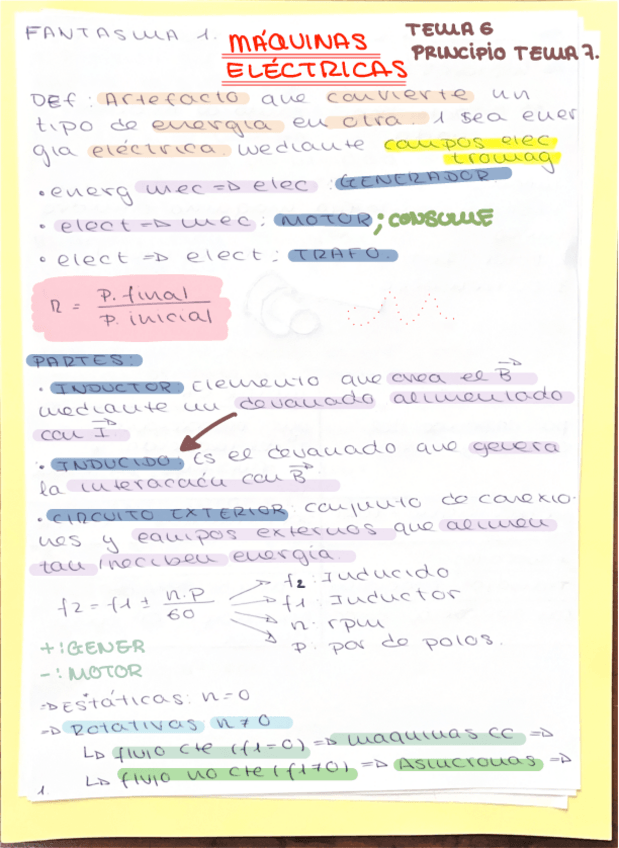 FANTASMA 1.
MÁQUINAS
ELÉCTRICAS
TEMA 6
PRINCIPIO TEMA 7.
DEF: Artefacto que convierte un
tipo de energia en otra. 1 sea ener
gia eléctrica. mediante campos elec
tromag
• energ mec => elec : GENERADOR
• elect => mec: MOTOR; CONSUME
• elect => elect: TRAFO.
η = P. final / P. inicial
PARTES:
• INDUCTOR Elemento que crea el B→
mediante un devanado alimentado
con I→.
• INDUCIDO: Es el devanado que genera
la interacción con B→
• CIRCUITO EXTERIOR: conjunto de conexio-
nes y equipos externos que alimen
tan/reciben energia.
f2 = f1 ± n.p / 60
f2: Inducido
f1: Inductor
n: rpm
p: par de polos.
+: GENER
-: MOTOR
=> Estáticas: n=0
=> Rotativas n≠0
↳ flujo cte (f1=0) => maquinas cc =>
↳ flujo no cte (f1≠0) => Asincronas =>
1.